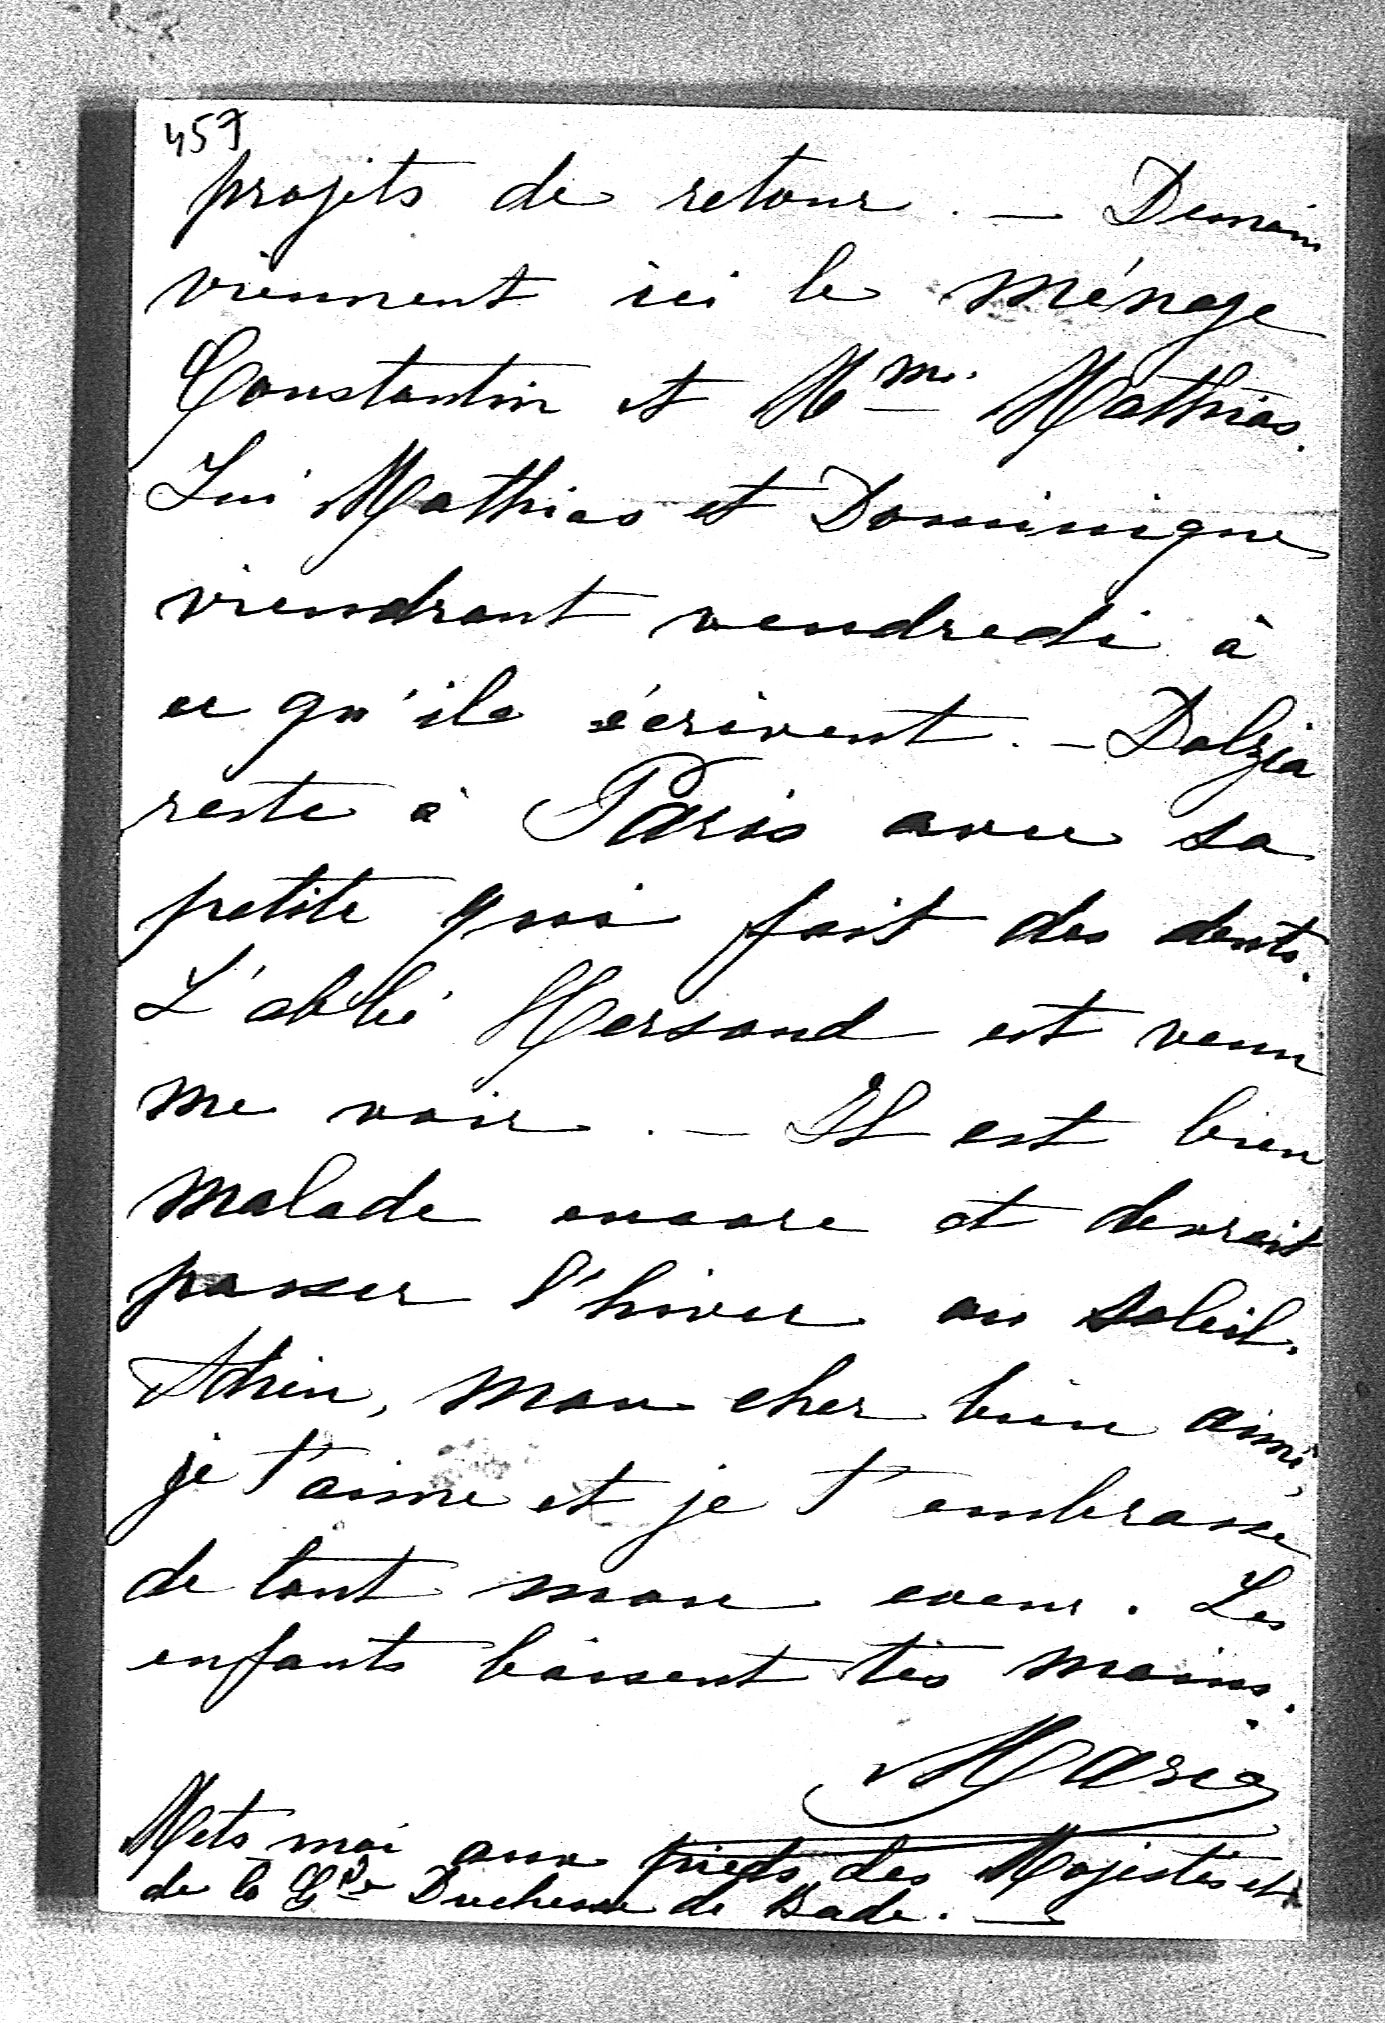 457
projets de retour. — Demain
viennent ici le ménage
Constantin et Mme. Mathias.
Lui Mathias et Dominique
viendront vendredi à
ce qu'ils écrivent. — Dolzia
reste à Paris avec sa
petite qui fait des dents.
L'abbé Hersand est venu
me voir. — Il est bien
malade encore et devrait
passer l'hiver au soleil.
Adieu, mon cher bien aimé,
je t'aime et je t'embrasse
de tout mon coeur. Les
enfants baisent tes mains.
Marie
Mets moi aux pieds des Majestés et
de la Gde Duchesse de Bade. —